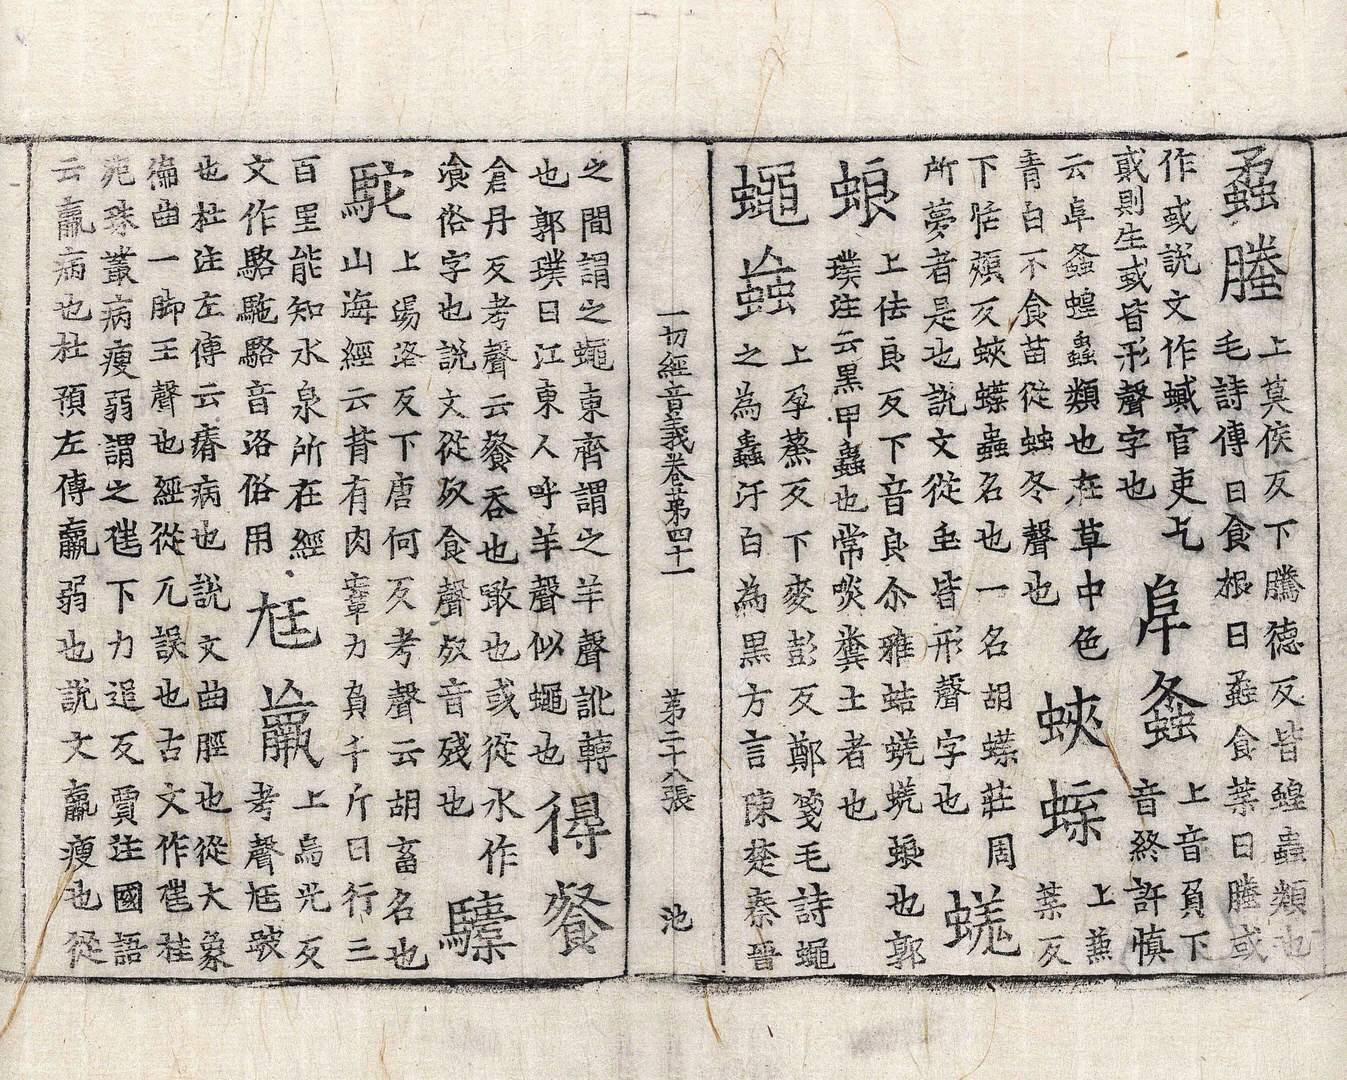 蟊螣
上莫侯反下騰德反皆蝗蟲類也
毛詩傳曰食根曰蟊食葉曰螣或
作或說文作蟘官吏乞
貣則生或皆形聲字也
阜螽
上音負下
音終許慎
云阜螽蝗蟲類也在草中色
青白不食苗從䖵冬聲也
蛺蝶
上蒹
葉反
下恬頰反蛺蝶蟲名也一名胡蝶莊周
所夢者是也說文從虫皆形聲字也
蜣
蜋
上佉良反下音良尒雅蛣蜣蜣蜋也郭
璞注云黑甲蟲也常啖糞土者也
蠅蝱
上孕蒸反下麥彭反鄭箋毛詩蠅
之為蟲汙白為黑方言陳楚秦晉
一切經音義卷苐四十一 苐二十八張 池
之間謂之蠅東齊謂之羊聲訛轉
也郭璞曰江東人呼羊聲似蠅也
得餐
倉丹反考聲云餐吞也噉也或從水作
湌俗字也說文從𣦼食聲𣦼音殘也
驝
駝
上湯洛反下唐何反考聲云胡畜名也
山海經云背有肉鞌力負千斤日行三
百里能知水泉所在經
文作駱駞駱音洛俗用
尪羸
上烏光反
考聲尪跛
也杜注左傳云瘠病也說文曲脛也從大象
徧曲一脚王聲也經從兀誤也古文作𡯁桂
苑珠叢病瘦弱謂之𡯁下力追反賈注國語
云羸病也杜預左傳羸弱也說文羸瘦也從